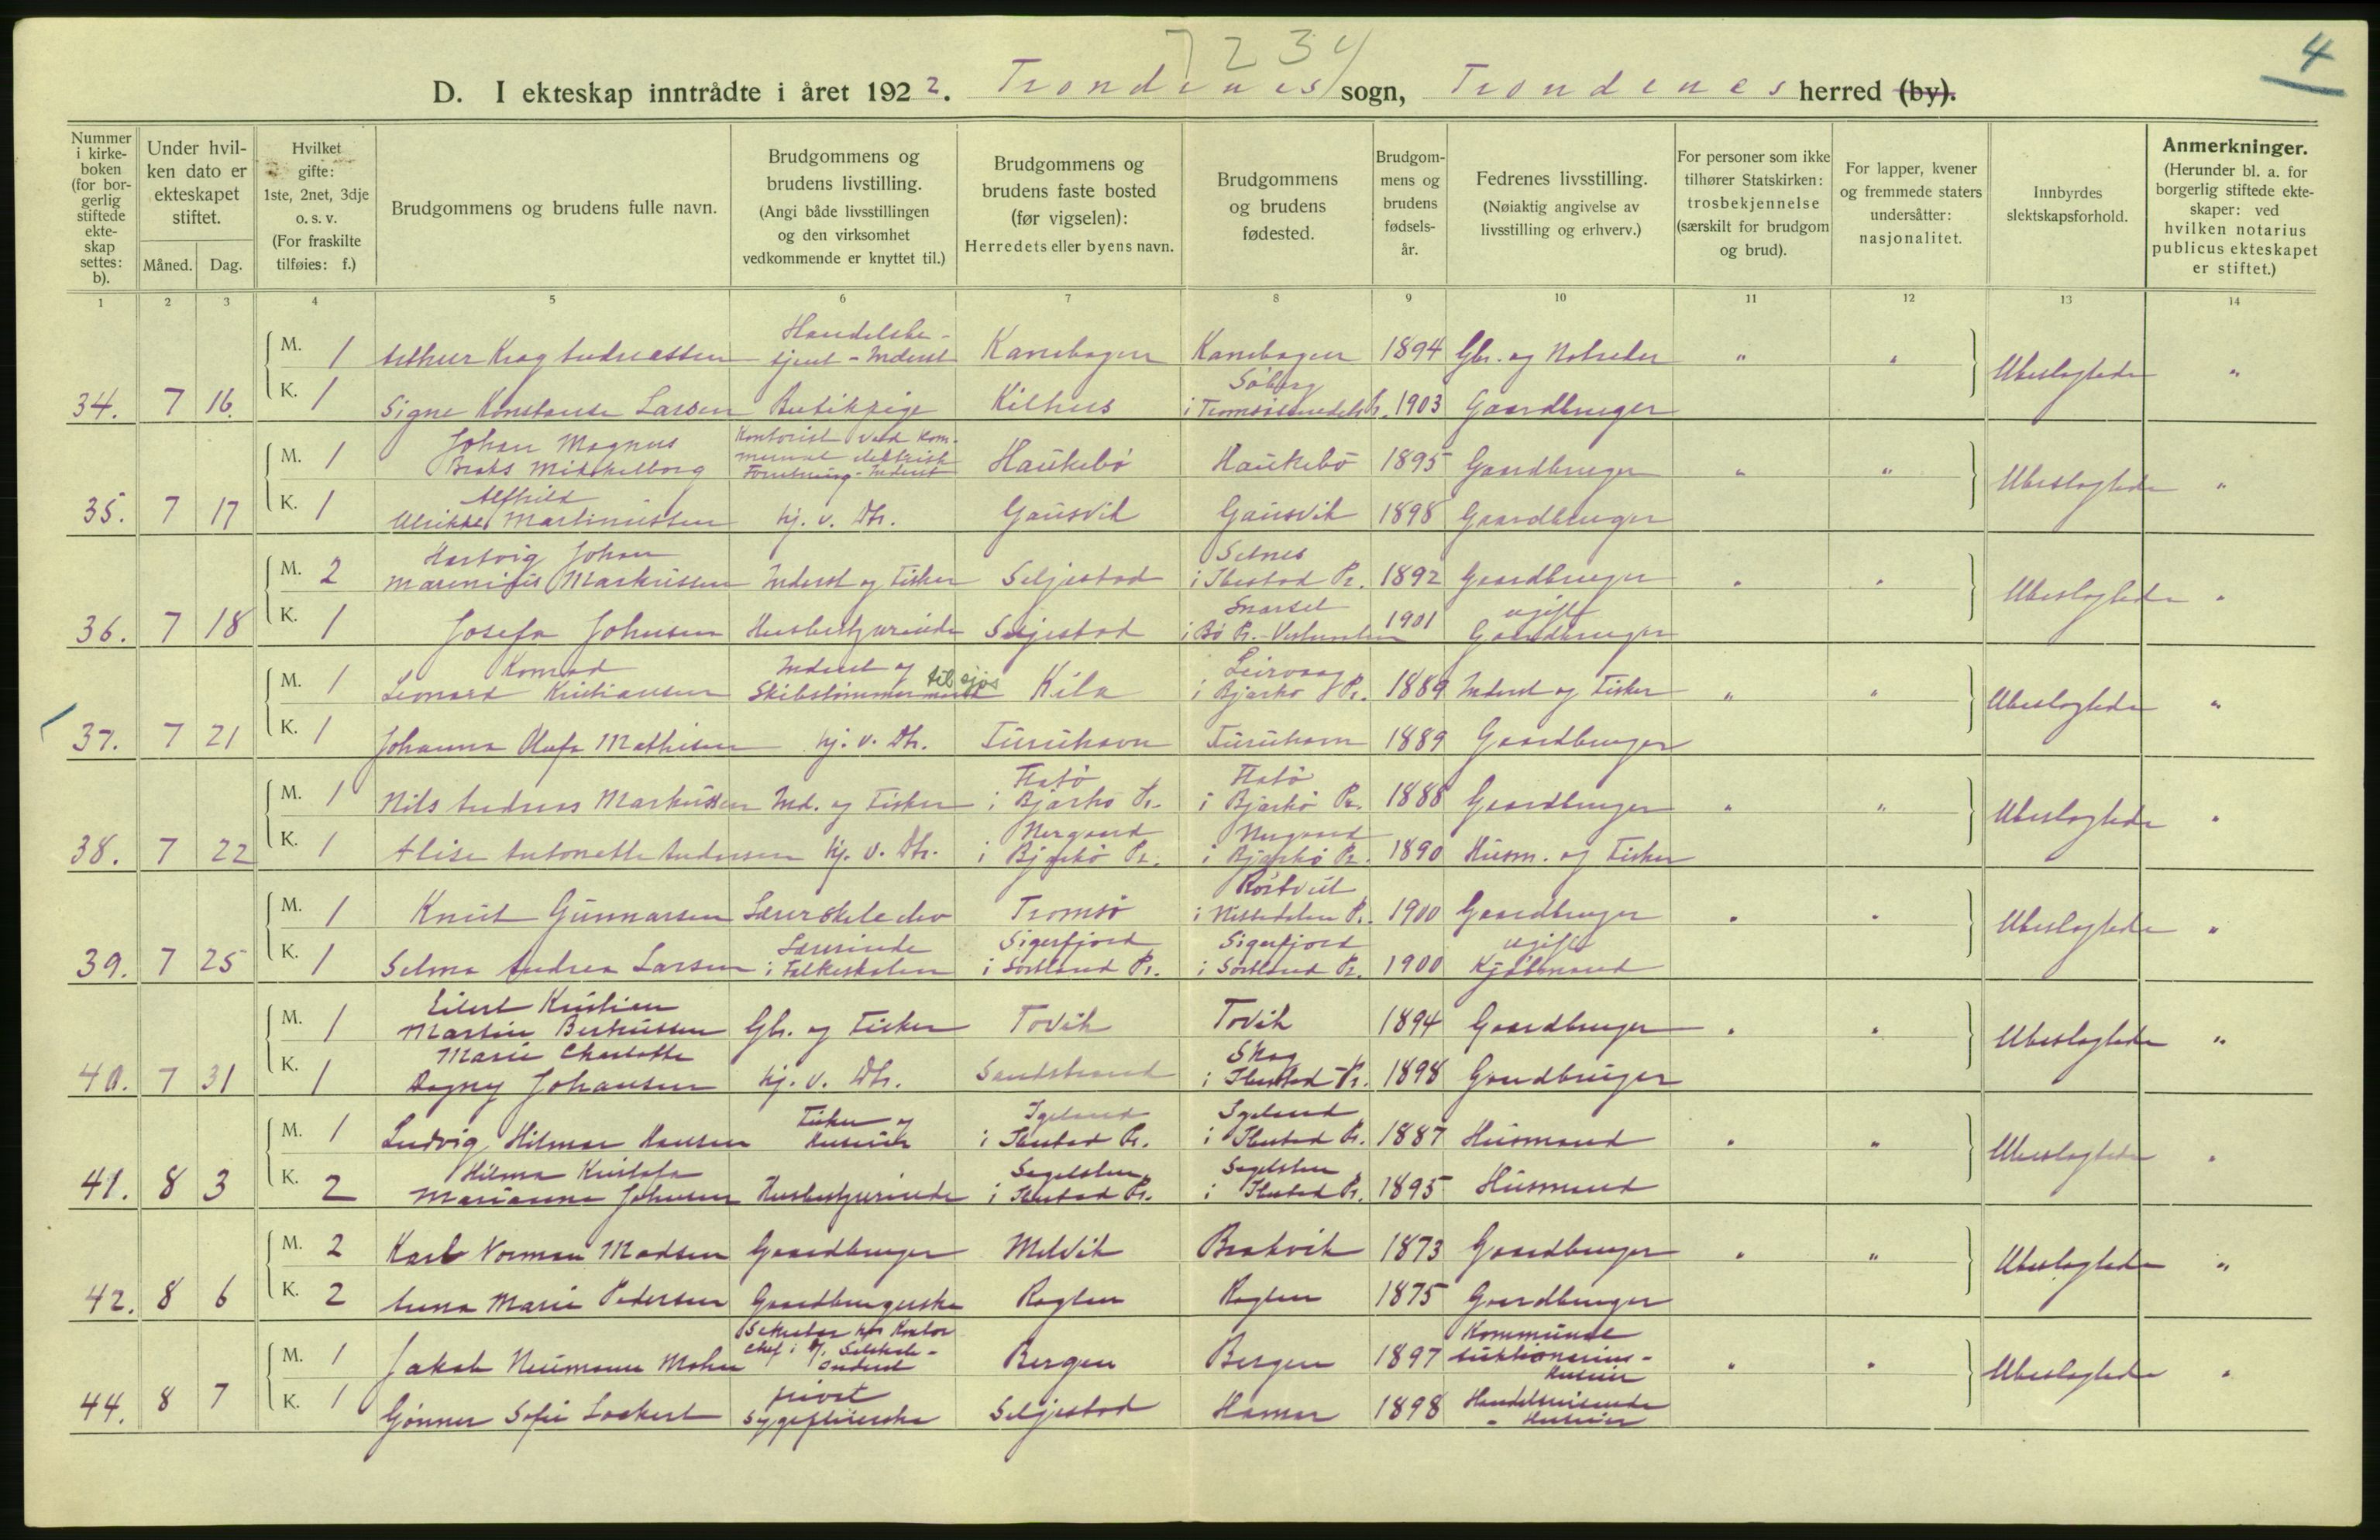 4
7234
D. I ekteskap inntrådte i året 1922. Trondenes sogn, Trondenes herred (by).
Nummer i kirkeboken (for borgerlig stiftede ekteskap settes: b).
Under hvilken dato er ekteskapet stiftet.
Måned. Dag.
Hvilket gifte: 1ste, 2net, 3dje o. s. v. (For fraskilte tilføies: f.)
Brudgommens og brudens fulle navn.
Brudgommens og brudens livstilling. (Angi både livsstillingen og den virksomhet vedkommende er knyttet til.)
Brudgommens og brudens faste bosted (før vigselen): Herredets eller byens navn.
Brudgommens og brudens fødested.
Brudgommens og brudens fødselsår.
Fedrenes livsstilling. (Nøiaktig angivelse av livsstilling og erhverv.)
For personer som ikke tilhører Statskirken: trosbekjennelse (særskilt for brudgom og brud).
For lapper, kvener og fremmede staters undersåtter: nasjonalitet.
Innbyrdes slektskapsforhold.
Anmerkninger. (Herunder bl. a. for borgerlig stiftede ekteskaper: ved hvilken notarius publicus ekteskapet er stiftet.)
1 2 3 4 5 6 7 8 9 10 11 12 13 14
M. 1 Arthur Krag Andreassen Handelsbetjent - Inderst Kanebogen Kanebogen 1894 Gbr. og Notreder " " Ubeslegtede "
34. 7 16. K. 1 Signe Konstanse Larsen Butikpige Kilhus Søberg i Tromsøsundet Pr. 1903 Gaardbruger
M. 1 Johan Magnus Brahs Mikkelborg Kontorist ved kommunal elektrisk Forretning - Inderst Haukebø Haukebø 1895 Gaardbruger " " Ubeslegtede "
35. 7 17 K. 1 Alfhild Ulrikke Martinussen hj. v. Dtr. Gausvik Gausvik 1898 Gaardbruger
M. 2 Hartvig Johan Marenius Markussen Inderst og Fisker Seljestad Selnes i Ibestad Pr. 1892 Gaardbruger " " Ubeslegtede "
36. 7 18 K. 1 Josefa Johnsen Husbestyrerinde Seljestad i Bø Pr. - 1901 ugift Gaardbruger
M. 1 Konrad Leonard Kristiansen Inderst og Skibstømmermand til sjøs Kila Leirvaag i Bjarkø Pr. 1889 Inderst og Fisker " " Ubeslegtede "
37. 7 21 K. 1 Johanna Olufa Mathisen hj. v. Dtr. Furuhavn Furuhavn 1889 Gaardbruger
M. 1 Nils Andreas Markussen Ind. og Fisker Flatø i Bjarkø Pr. Flatø i Bjarkø Pr. 1888 Gaardbruger " " Ubeslegtede "
38. 7 22 K. 1 Alise Antonette Andersen hj. v. Dtr. Nergaard i Bjarkø Pr. Nergaard i Bjarkø Pr. 1890 Husm. og Fisker
M. 1 Knut Gunnarsen Lærerskoleelev Tromsø i Nissedalen Pr. 1900 Gaardbruger " " Ubeslegtede "
39. 7 25 K. 1 Selma Andrea Larsen Lærerinde i Folkeskolen Sigerfjord i Sortland Pr. Sigerfjord i Sortland Pr. 1900 ugift Kjøbmand
M. 1 Eilert Kristian Martin Berthussen Gbr. og Fisker Tovik Tovik 1894 Gaardbruger " " Ubeslegtede "
40. 7 31 K. 1 Marie Charlotte Dagny Johansen hj. v. Dtr. Sandstrand Skog i Ibestad Pr. 1898 Gaardbruger
M. 1 Ludvig Hilmar Hansen Fisker og Huseier Igeland i Ibestad Pr. Igeland i Ibestad Pr. 1887 Husmand " " Ubeslegtede "
41. 8 3 K. 2 Hilma Kristofa Marianna Johnsen Husbestyrerinde i Ibestad Pr. i Ibestad Pr. 1895 Husmand
M. 2 Karl Norman Madsen Gaardbruger Melvik Brokvik 1873 Gaardbruger " " Ubeslegtede "
42. 8 6 K. 2 Anna Marie Pedersen Gaardbrugerske Roglen Roglen 1875 Gaardbruger
M. 1 Jakob Neumann Mohn Sekretær hos Kontorchef i Bergen Bergen 1897 Kommune Auktionarius - Huseier " " Ubeslegtede "
44. 8 7 K. 1 Gjønner Sofie Lockert privat Sygepleierske Seljestad Hamar 1898 Handelsreisende - Huseier